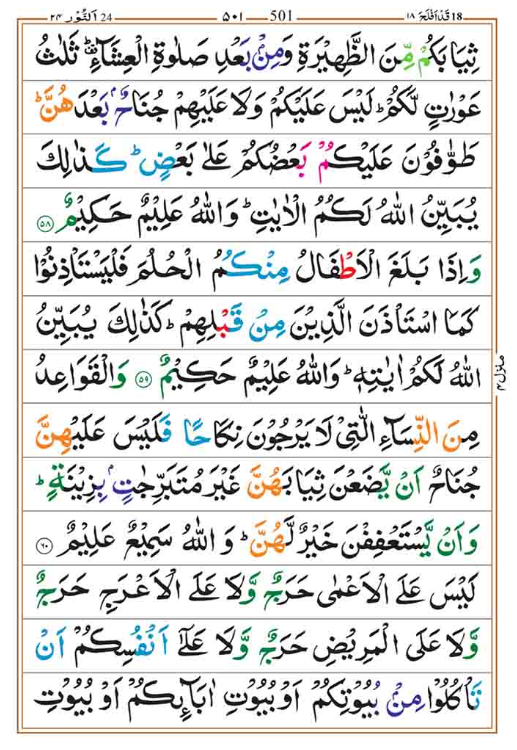 18 قَدْاَفْلَحَ ١٨ ٥٠١ 501 24 اَلنُّوْر ٢٤
ثِيَابَكُمْ مِّنَ الظَّهِيْرَةِ وَمِنْۢ بَعْدِ صَلٰوةِ الْعِشَآءِ ؕ ثَلٰثُ
عَوْرٰتٍ لَّكُمْ ؕ لَيْسَ عَلَيْكُمْ وَلَا عَلَيْهِمْ جُنَاحٌۢ بَعْدَ هُنَّ ؕ
طَوّٰفُوْنَ عَلَيْكُمْ بَعْضُكُمْ عَلٰى بَعْضٍ ؕ كَذٰلِكَ
يُبَيِّنُ اللّٰهُ لَكُمُ الْاٰيٰتِ ؕ وَاللّٰهُ عَلِيْمٌ حَكِيْمٌ ٥٨
وَاِذَا بَلَغَ الْاَطْفَالُ مِنْكُمُ الْحُلُمَ فَلْيَسْتَاْذِنُوْا
كَمَا اسْتَاْذَنَ الَّذِيْنَ مِنْ قَبْلِهِمْ ؕ كَذٰلِكَ يُبَيِّنُ
اللّٰهُ لَكُمْ اٰيٰتِهٖ ؕ وَاللّٰهُ عَلِيْمٌ حَكِيْمٌ ٥٩ وَالْقَوَاعِدُ
مِنَ النِّسَآءِ الّٰتِيْ لَا يَرْجُوْنَ نِكَاحًا فَلَيْسَ عَلَيْهِنَّ
جُنَاحٌ اَنْ يَّضَعْنَ ثِيَابَهُنَّ غَيْرَ مُتَبَرِّجٰتٍۢ بِزِيْنَةٍ ؕ
وَاَنْ يَّسْتَعْفِفْنَ خَيْرٌ لَّهُنَّ ؕ وَاللّٰهُ سَمِيْعٌ عَلِيْمٌ ٦٠
لَيْسَ عَلَى الْاَعْمٰى حَرَجٌ وَّلَا عَلَى الْاَعْرَجِ حَرَجٌ
وَّلَا عَلَى الْمَرِيْضِ حَرَجٌ وَّلَا عَلٰٓى اَنْفُسِكُمْ اَنْ
تَاْكُلُوْا مِنْۢ بُيُوْتِكُمْ اَوْ بُيُوْتِ اٰبَآئِكُمْ اَوْ بُيُوْتِ
منزل ٤